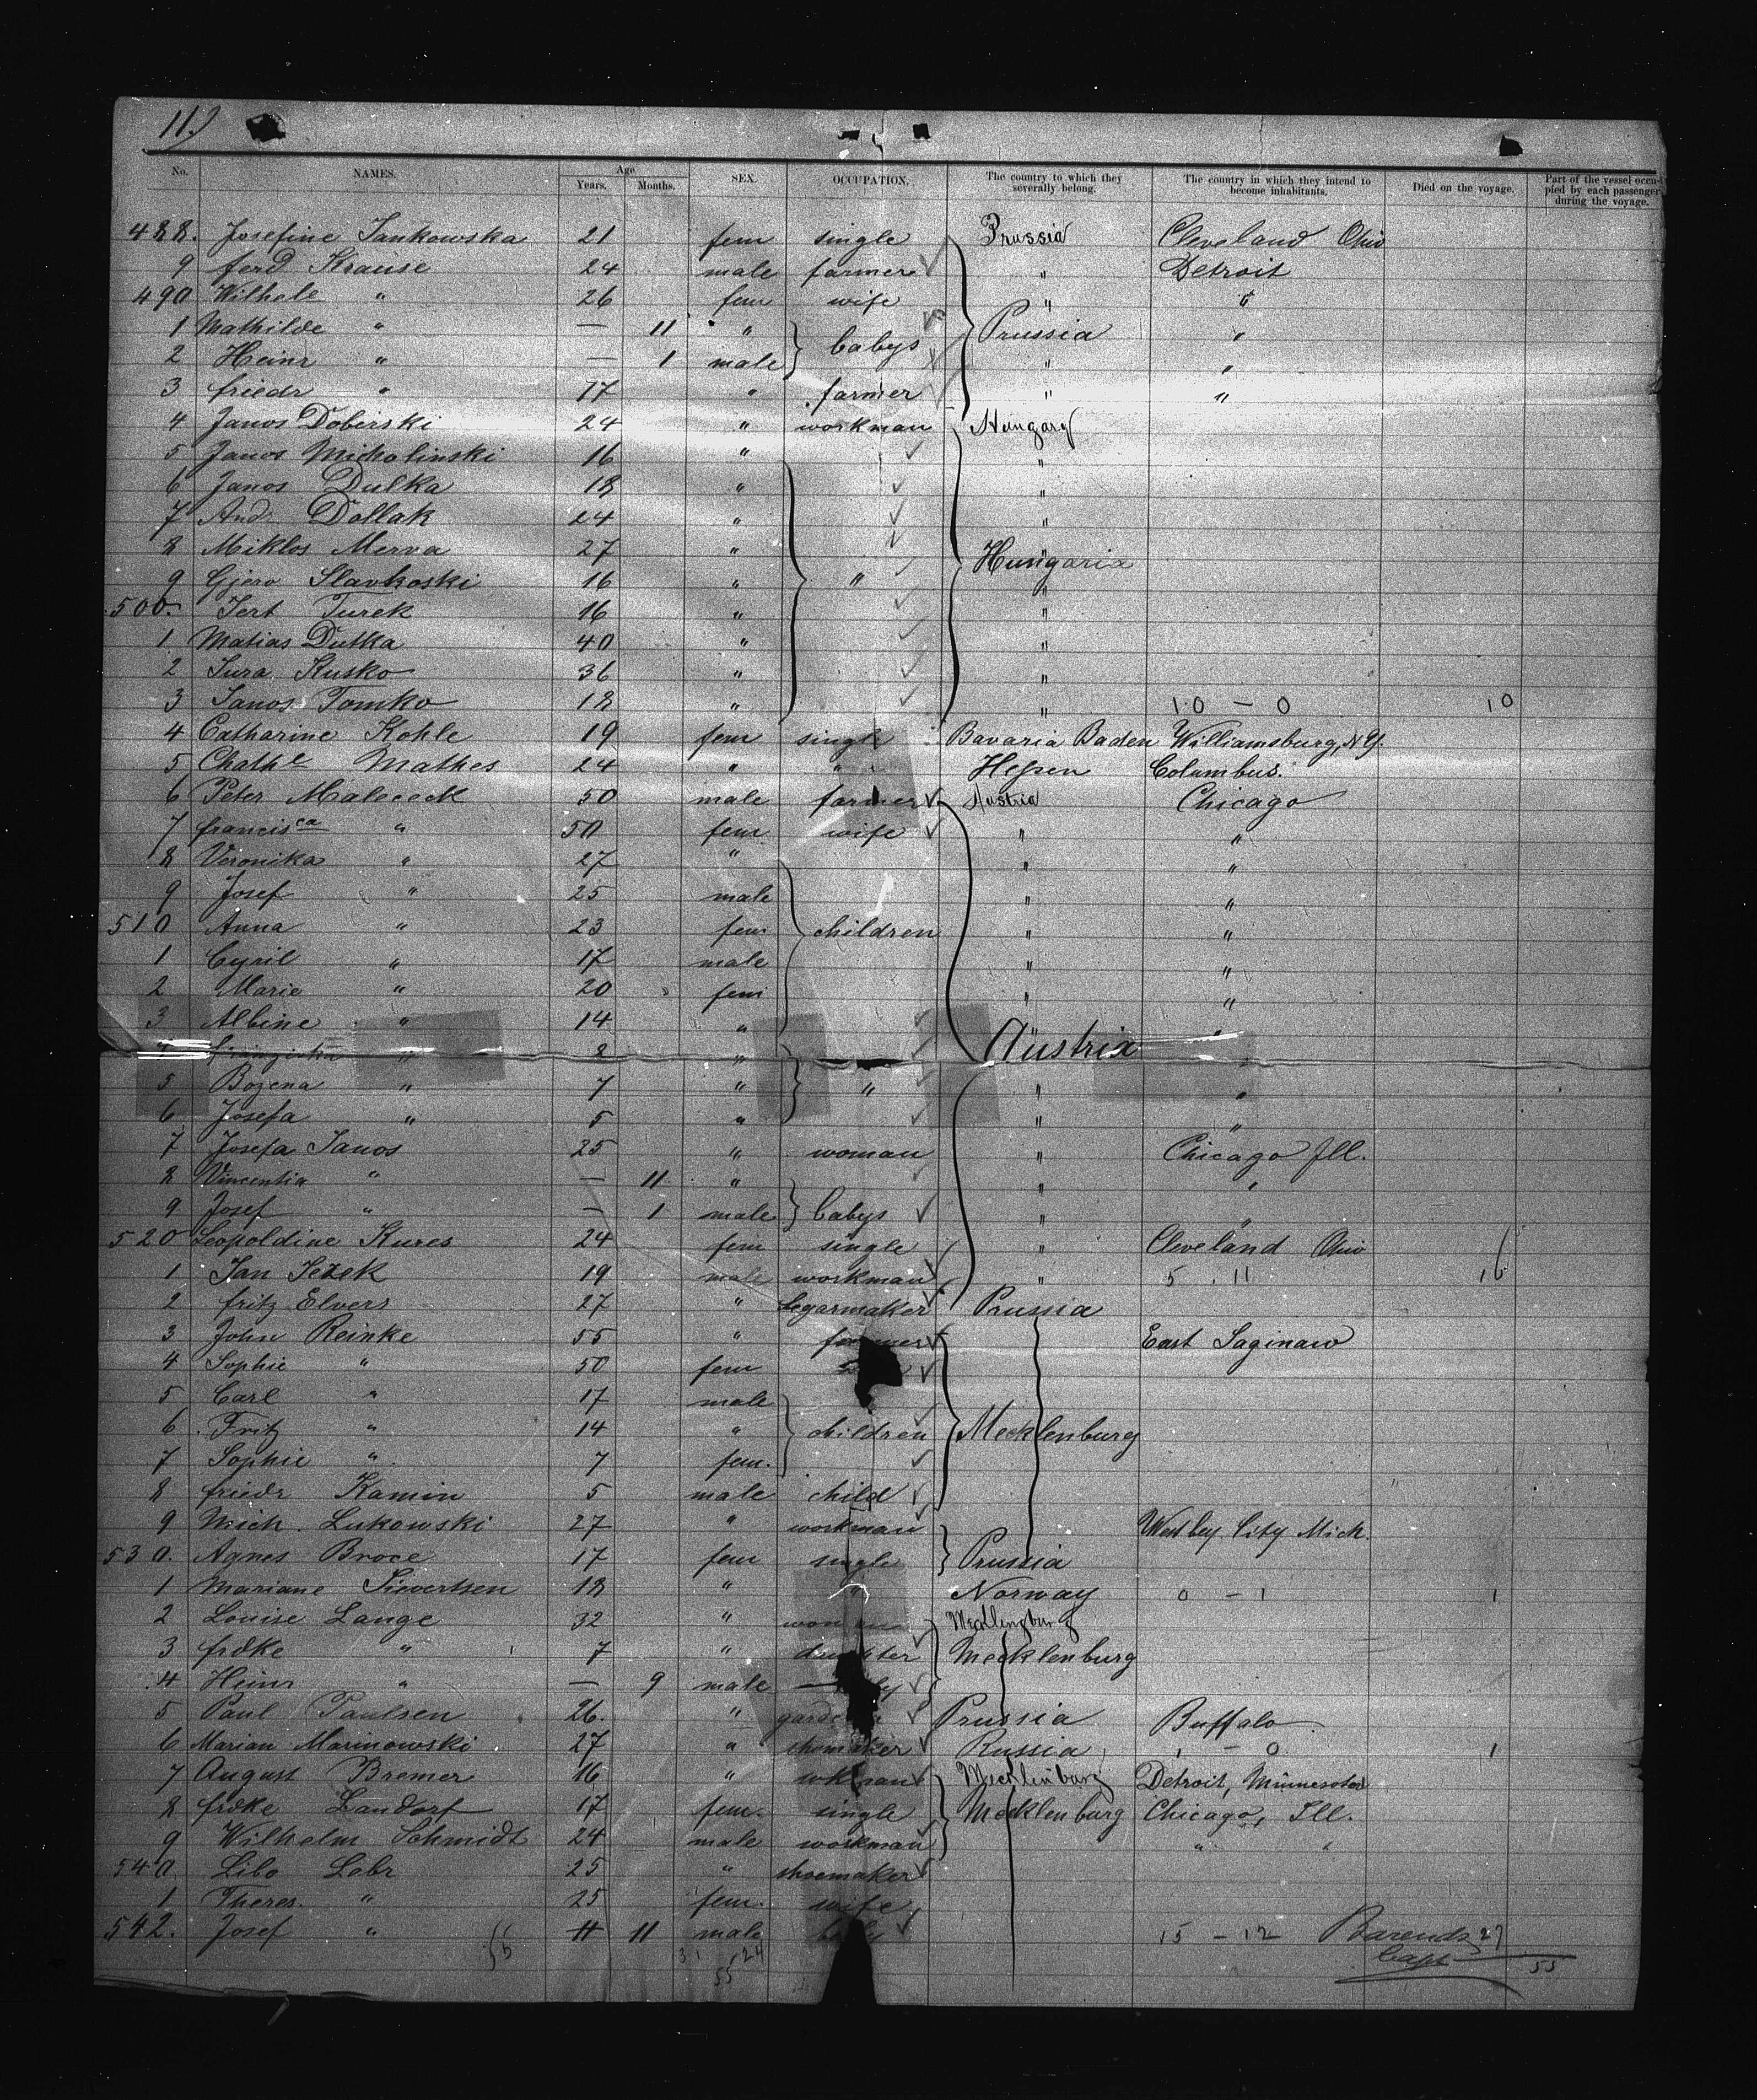 11.)
No. NAMES. Age Years. Months. SEX. OCCUPATION. The country to which they severally belong. The country in which they intend to become inhabitants. Died on the voyage. Part of the vessel occupied by each passenger during the voyage.
488. Josefine Jankowska 21 fem single Prussia Cleveland Ohio
9 ferd Krause 24 male farmer " Detroit
490 Wilhele " 26 fem wife " "
1 Mathilde " — 11 " babys Prussia "
2 Heinr " — 1 male " "
3 friedr " 17 " farmer " "
4 Janos Doberski 24 " workman Hungary
5 Janos Micholinski 16 " "
6 Janos Dulka 18 " "
7 And. Dollak 24 " "
8 Miklos Merva 27 " " Hungaria
9 Gjero Slavkoski 16 " " "
500. Jert Turek 16 " "
1 Matias Dutka 40 " "
2 Jura Kusko 36 " "
3 Janos Tomko 18 " " 10 — 0 10
4 Catharine Kohle 19 fem single Bavaria Baden Williamsburg, N.Y.
5 Chathe Mathes 24 " " Hessen Columbus.
6 Peter 50 male farmer Austria Chicago
7 francisca " 50 fem wife " "
8 Veronika " 27 " " "
9 Josef " 25 male " "
510 Anna " 23 fem children " "
1 Cyril " 17 male " "
2 Marie " 20 fem " "
3 Albine " 14 " Austria "
" 8 "
5 Bozena " 7 " " " "
6 Josefa " 5 " " "
7 Josefa Janos 25 " woman " Chicago Ill.
8 Vincentia " — 11 " " "
9 Josef " — 1 male babys " "
520 Leopoldine Kures 24 fem single " Cleveland Ohio
1 Jan Jezek 19 male workman " 5 . 11 16
2 fritz Elvers 27 " segarmaker Prussia
3 John Reinke 55 " farmer East Saginaw
4 Sophie " 50 fem
5 Carl " 17 male
6 Fritz " 14 " children Mecklenburg
7 Sophie " 7 fem.
8 friedr Kamin 5 male child
9 Mich. Lukowski 27 " workman West bey City Mich.
530. Agnes Broce 17 fem single Prussia
1 Mariane Sievertsen 18 " " Norway 0 — 1 1
2 Louise Lange 32 " woman Mecklingburg
3 frdke " 7 " daughter Mecklenburg
4 Heinr " — 9 male
5 Paul Paulsen 26. " Prussia Buffalo
6 Marian Marinowski 27 " shomaker Russia 1 — 0 1
7 August Bremer 16 " wkman Mecklinburg Detroit, Minnesota
8 frdke Landorf 17 fem. single Mecklenburg Chicago, Ill.
9 Wilhelm Schmidt 24 male workman " "
540. Libo Lebr 25 " shoemaker
1 Theres. " 25 fem. wife
542. Josef " 11 male baby 15 — 12 Barends 27
31 24 Capt 55
55